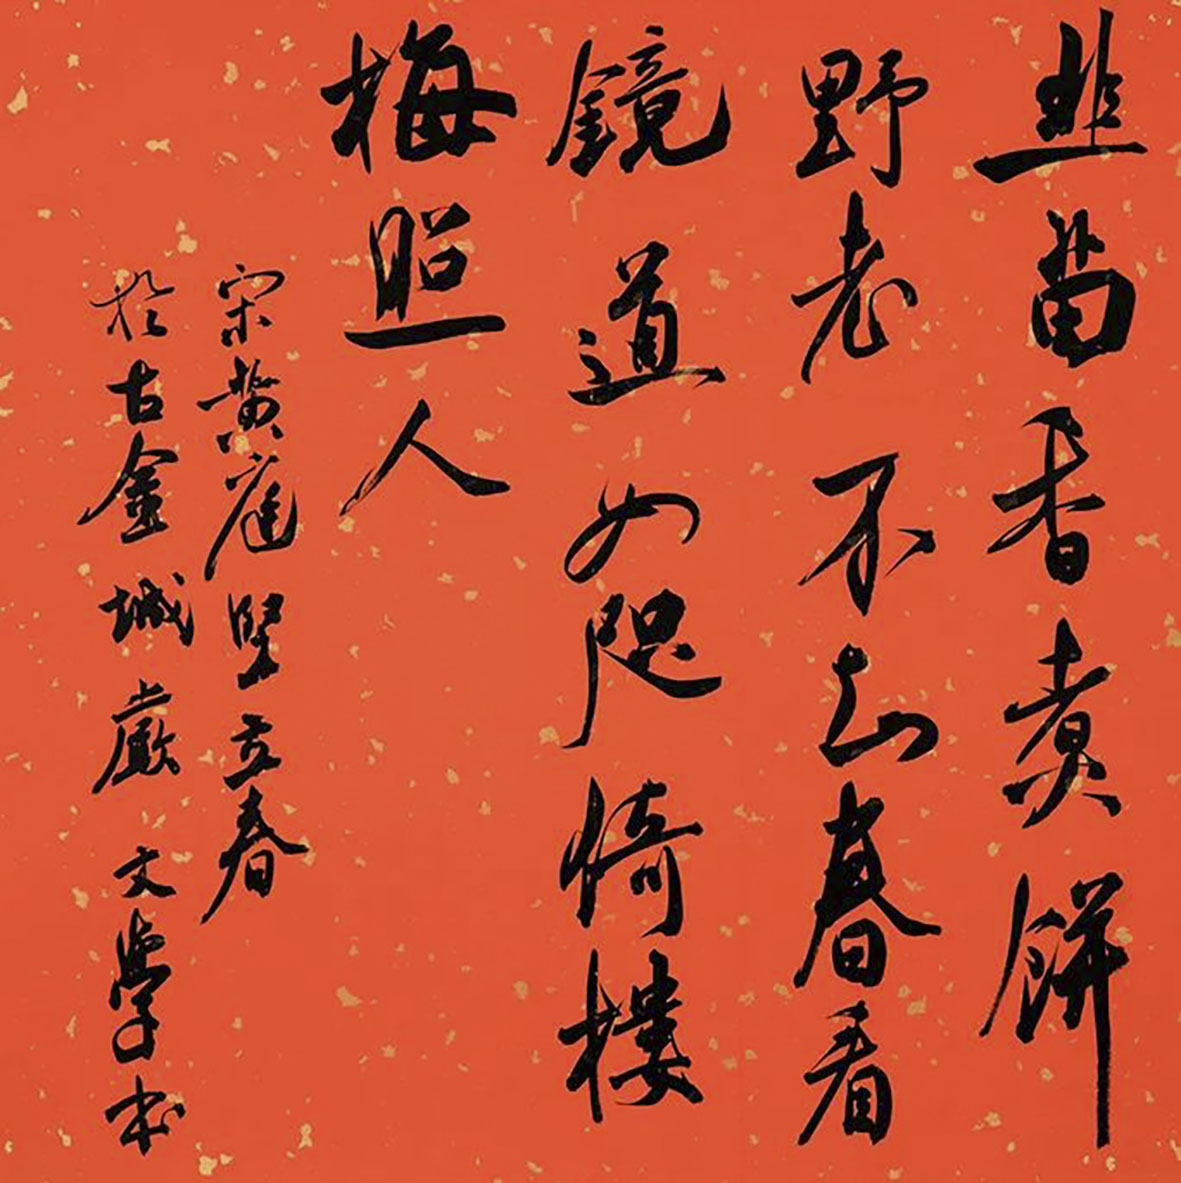 韭苗香煮餅
野老不知春看
鏡道如咫倚樓
梅照人
宋黄庭堅立春
於古金城嚴文學书